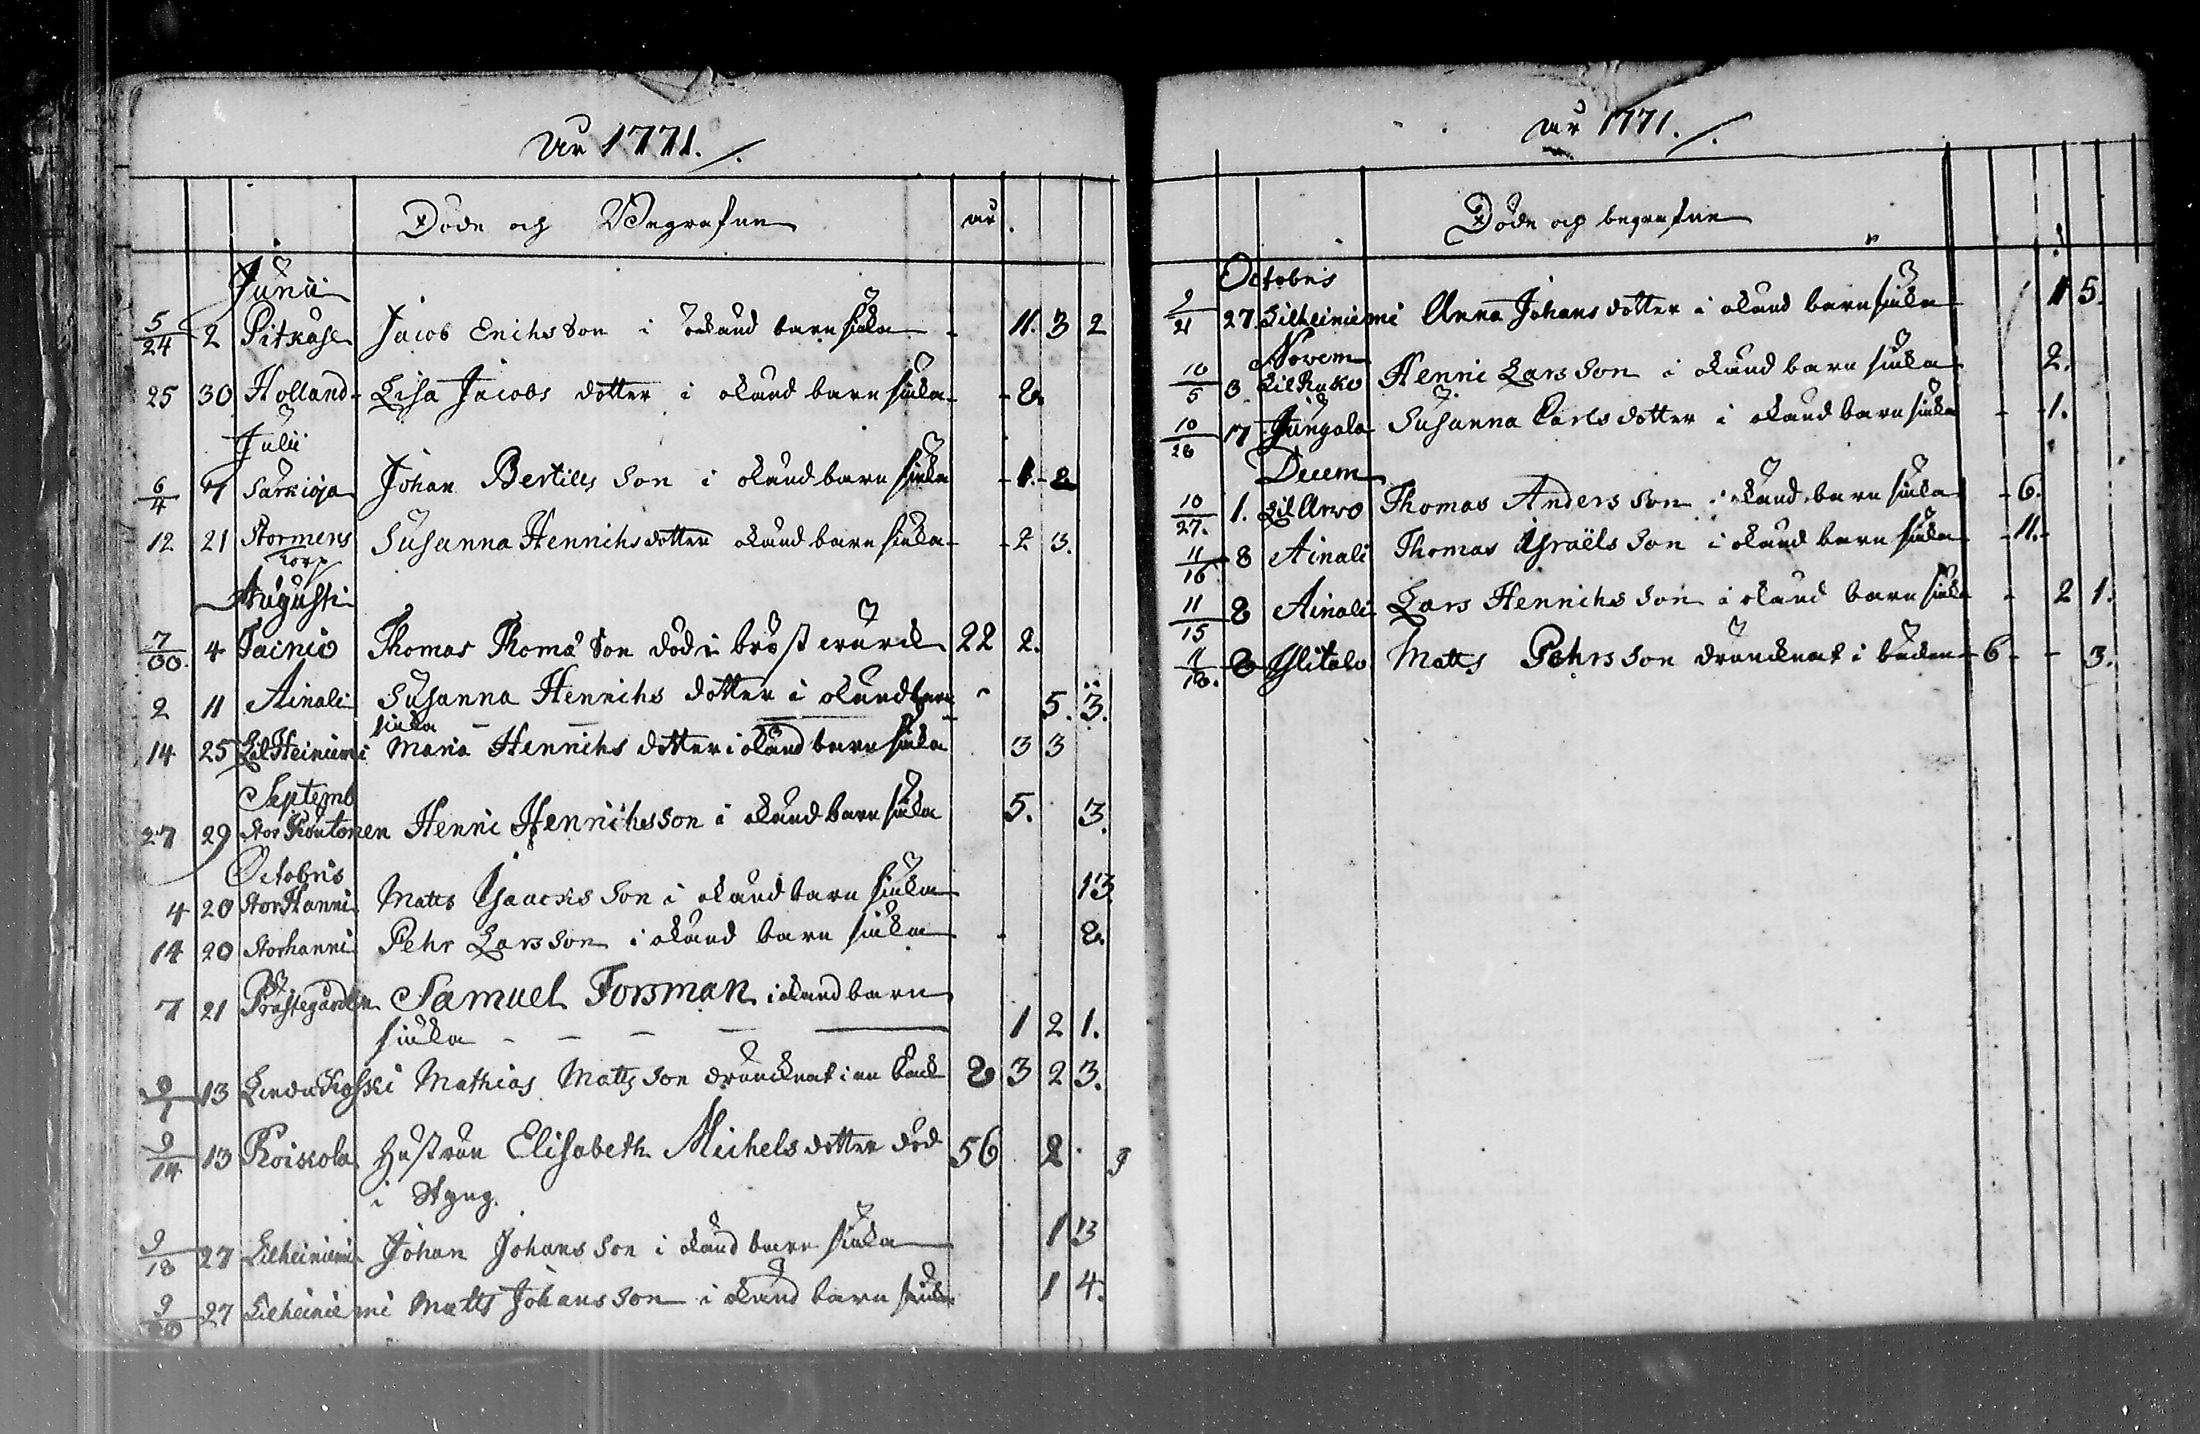 År 1771./.
Döde och Begrafne år.
Junii
5/24 2 Pitkäse Jacob Erichs Son i okänd barn siuka - 11. 3 2
25 30 Holland Lisa Jacobs dotter i okänd barn siuka - 2.
Julii
6/4 7 Särkioja Johan Bertills Son i okänd barn siuka - 1. - 2
12 21 Stormens Susanna Henrichs dotter okänd barn siuka - 2 3.
torp
Augusti
7/30. 4 Tainio Thomas Thomæ Son död i bröst wärck 22 2.
2 11 Ainali Susanna Henrichs dotter i okänd barn 5. 3.
siuka
14 25 Lil Heiniemi Maria Henrichs dotter i okänd barn siuka 3 3
Septemb
27 29 Stor Kontonen Henric Henrichs Son i okänd barn siuka 5. 3.
Octobris
4 20 Stor Hanni Matts Isaachs Son i okänd barn siuka 13
14 20 Storhanni Pehr Lars Son i okänd barn siuka 2.
7 21 Prästegården Samuel Forsman i okänd barn
siuka - - - 1 2 1.
9/7 13 Lindu Koski Mathias Matts Son drunknat i en bäck 2 3 2 3.
9/14 13 Koiskola Hustrun Elisabeth Michels dotter död 56 2.
i Styng.
9/18 27 Lilheiniemi Johan Johans Son i okänd barn siuka 1 3
9/20 27 Lilheiniemi Matts Johans Son i okänd barn siuka 1 4.
år 1771./.
Döde och begrafne
Octobris
9/21 27. Lilheiniemi Anna Johans dotter i okänd barn siuka 1 5.
Novem
10/5 3 Lil Ruko Henric Lars Son i okänd barn siuka 2.
10/26 17 Jungala Susanna Carls dotter i okänd barn siuka - 1.
Decem
10/27. 1. Lil Arvo Thomas Anders Son i okänd barn siuka - 6.
11/16 8 Ainali Thomas Israëls Son i okänd barn siuka - 11. -
11/15 8 Ainali Lars Henrichs Son i okänd barn siuka - 2 1.
11/18. 8 Ylitalo Matts Pehrs Son drunknat i bäcken 6 - - 3.